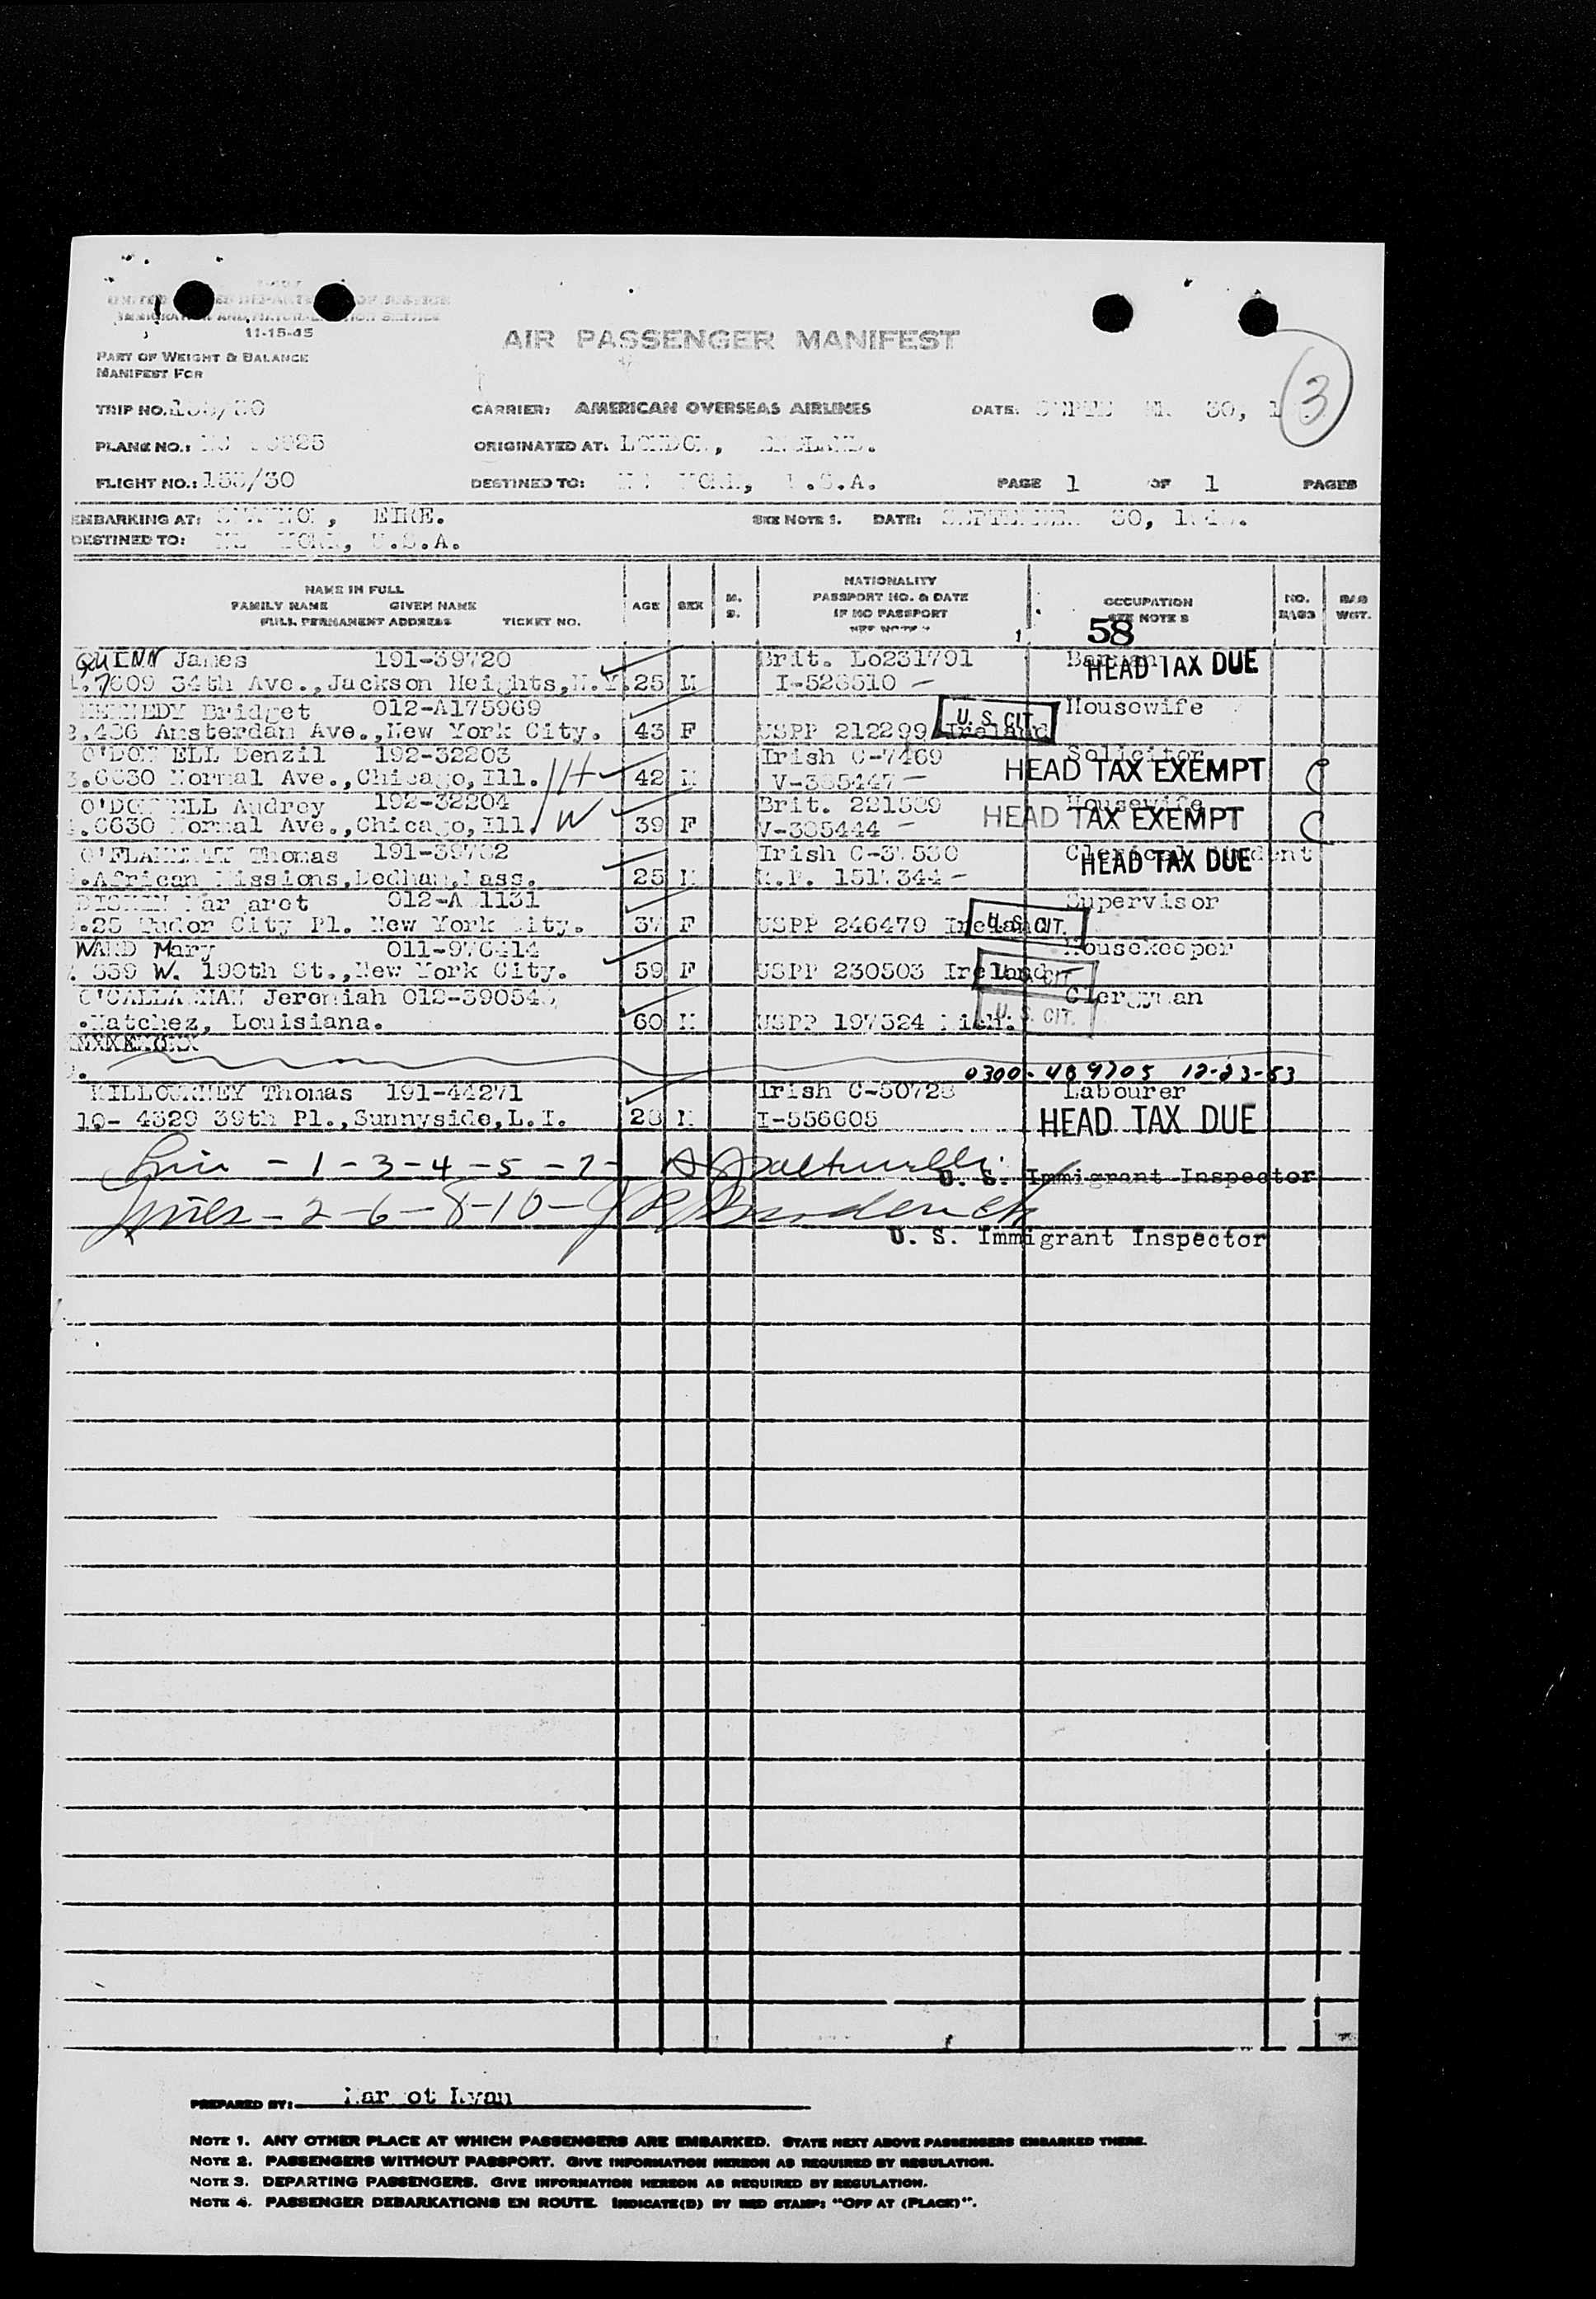 11-15-45
AIR PASSENGER MANIFEST
PART OF WEIGHT & BALANCE
MANIFEST FOR
3
TRIP NO.
CARRIER: AMERICAN OVERSEAS AIRLINES
DATE: 30,
PLANE NO.:
ORIGINATED AT: LONDON, ENGLAND.
FLIGHT NO.: 155/30
DESTINED TO: NEW YORK, U.S.A.
PAGE 1 OF 1 PAGES
EMBARKING AT: SHANNON, EIRE.
SEE NOTE 1. DATE: SEPTEMBER 30,
DESTINED TO: NEW YORK, U.S.A.
NAME IN FULL
FAMILY NAME GIVEN NAME
FULL PERMANENT ADDRESS TICKET NO.
AGE SEX M. S.
NATIONALITY
PASSPORT NO. & DATE
IF NO PASSPORT
OCCUPATION
SEE NOTE 2
NO. BAGS
BAG WGT.
58
QUINN James 191-39720 Brit. Lo231791 Barman
1. 7609 34th Ave., Jackson Heights, N.Y. 25 M I-526510 - HEAD TAX DUE
KENNEDY Bridget 012-A175969 Housewife
2. 436 Amsterdam Ave., New York City. 43 F USPP 212299 Ireland U. S. CIT.
O'DONNELL Denzil 192-32203 Irish C-7469 Solicitor
3. 6630 Normal Ave., Chicago, Ill. H 42 M V-385447 - HEAD TAX EXEMPT C
O'DONNELL Audrey 192-32204 Brit. 221589 Housewife
6630 Normal Ave., Chicago, Ill. W 39 F V-385444 - HEAD TAX EXEMPT C
O'FLAHERTY Thomas 191-39732 Irish Clerical Student
African Missions, Dedham, Mass. 25 M HEAD TAX DUE
Margaret 1131 Supervisor
25 Tudor City Pl. New York City. 37 F USPP 246479 Ireland U. S. CIT.
WARD Mary 011-976414 Housekeeper
559 W. 190th St., New York City. 59 F USPP 230503 Ireland
O'CALLAGHAN Jeremiah Clergyman
Natchez, Louisiana. 60 M USPP 197524 U. S. CIT.
0300-469705 12-23-53
KILLOURHEY Thomas 191-44271 Irish C-50728 Labourer
10- 4329 39th Pl., Sunnyside, L.I. 28 M I-556605 HEAD TAX DUE
- 1 - 3 - 4 - 5 - 7 -
U. S. Immigrant Inspector
Lines - 2 - 6 - 8 - 10 -
U. S. Immigrant Inspector
PREPARED BY: Margot Ryan
NOTE 1. ANY OTHER PLACE AT WHICH PASSENGERS ARE EMBARKED. STATE NEXT ABOVE PASSENGERS EMBARKED THERE.
NOTE 2. PASSENGERS WITHOUT PASSPORT. GIVE INFORMATION HEREON AS REQUIRED BY REGULATION.
NOTE 3. DEPARTING PASSENGERS. GIVE INFORMATION HEREON AS REQUIRED BY REGULATION.
NOTE 4. PASSENGER DEBARKATIONS EN ROUTE. INDICATE(D) BY RED STAMP: "OFF AT (PLACE)".